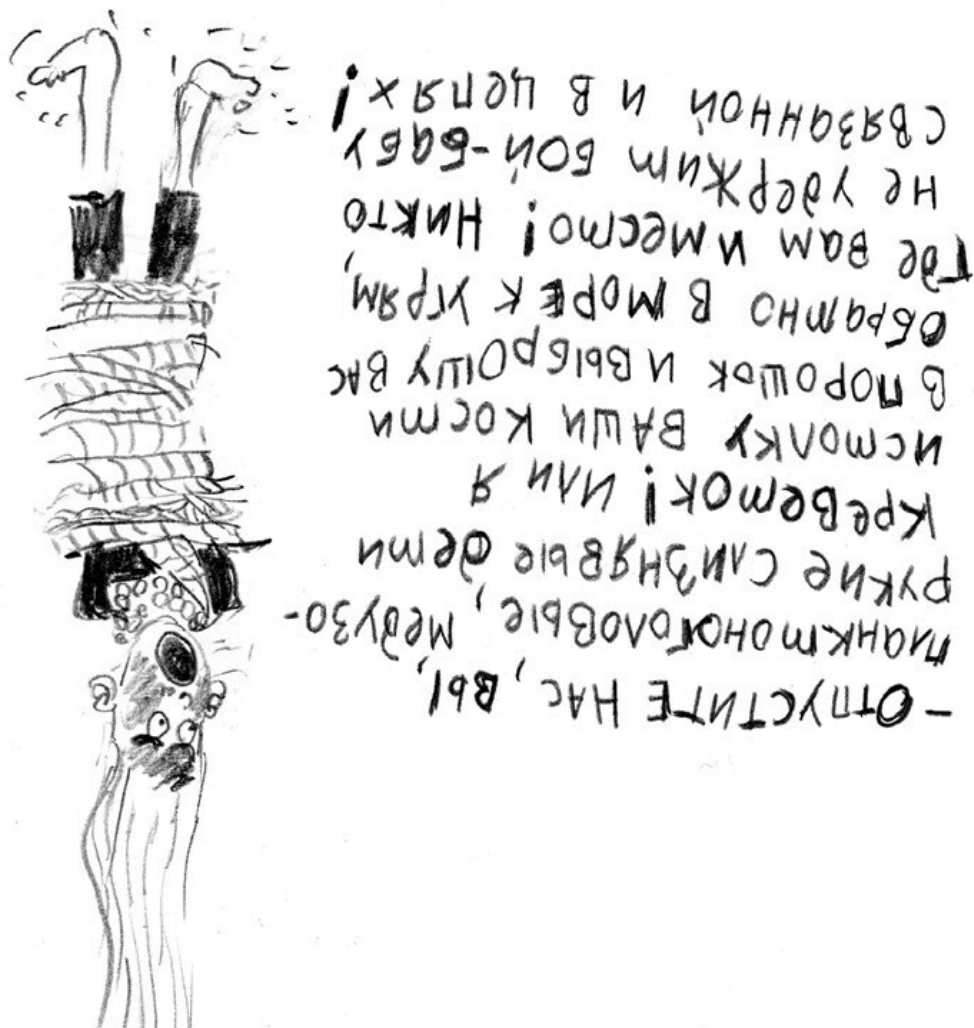 – ОТПУСТИТЕ НАС, ВЫ,
планктоноголовые, медузо-
рукие слизнявые дети
креветок! или я
истолку ваши кости
в порошок и выброшу вас
обратно в море к угрям,
где вам и место! Никто
не удержит бой-бабу
связанной и в цепях!